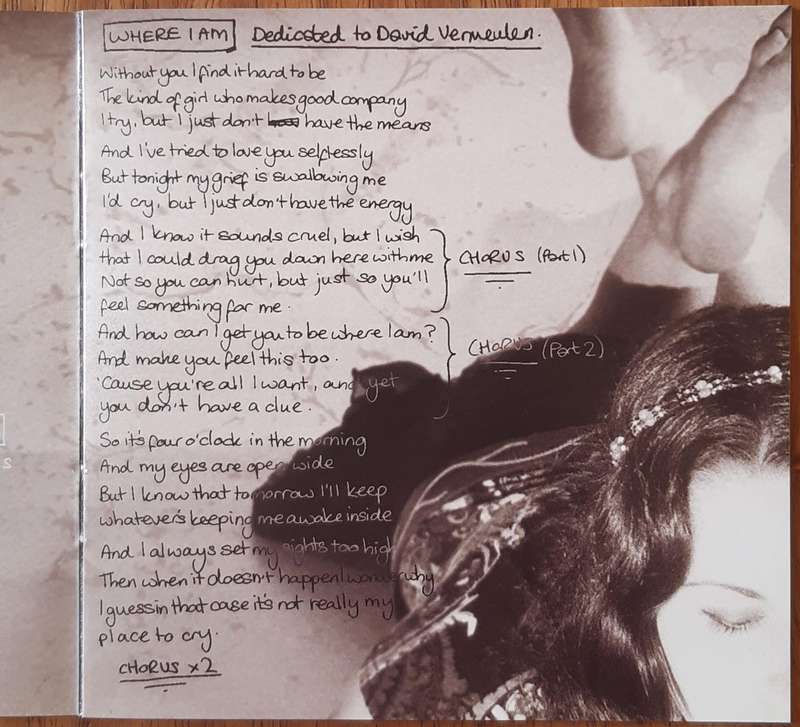 WHERE I AM Dedicated to David Vermeulen.
Without you I find it hard to be
The kind of girl who makes good company
I try, but I just don't have the means
And I've tried to love you selflessly
But tonight my grief is swallowing me
I'd cry, but I just don't have the energy
And I know it sounds cruel, but I wish
that I could drag you down here with me
Not so you can hurt, but just so you'll
feel something for me.
CHORUS (Part 1)
And how can I get you to be where I am?
And make you feel this too.
'Cause you're all I want, and yet
you don't have a clue.
CHORUS (Part 2)
So it's four o'clock in the morning
And my eyes are open wide
But I know that tomorrow I'll keep
whatever's keeping me awake inside
And I always set my sights too high
Then when it doesn't happen I wonder why
I guess in that case it's not really my
place to cry.
CHORUS x2
S